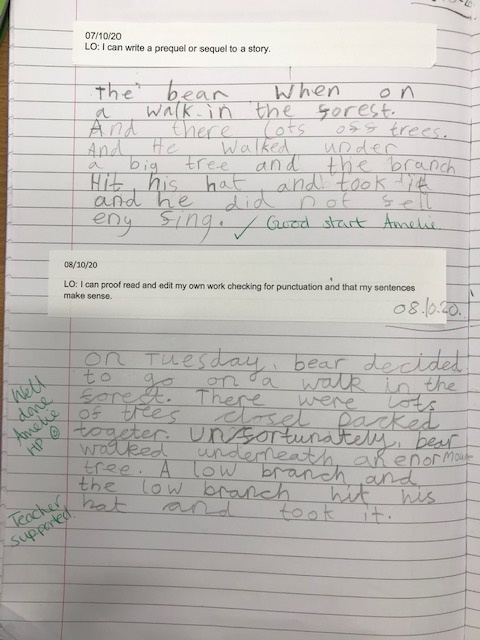 07/10/20
LO: I can write a prequel or sequel to a story.
the bear When on
a walk in the forest.
And there lots off trees.
And He walked under
a big tree and the branch
Hit his hat and took it
and he did not fell
eny sing. ✓ Good start Amelie.
08/10/20
LO: I can proof read and edit my own work checking for punctuation and that my sentences
make sense.
08.10.20.
On Tuesday, bear decided
to go on a walk in the
forest. There were lots
of trees closel packed
togeter. Unfortunately, bear
walked underneath an enormous
tree. A low branch and
the low branch hit his
hat and took it.
Well
done
Amelie
HP
Teacher
supported.